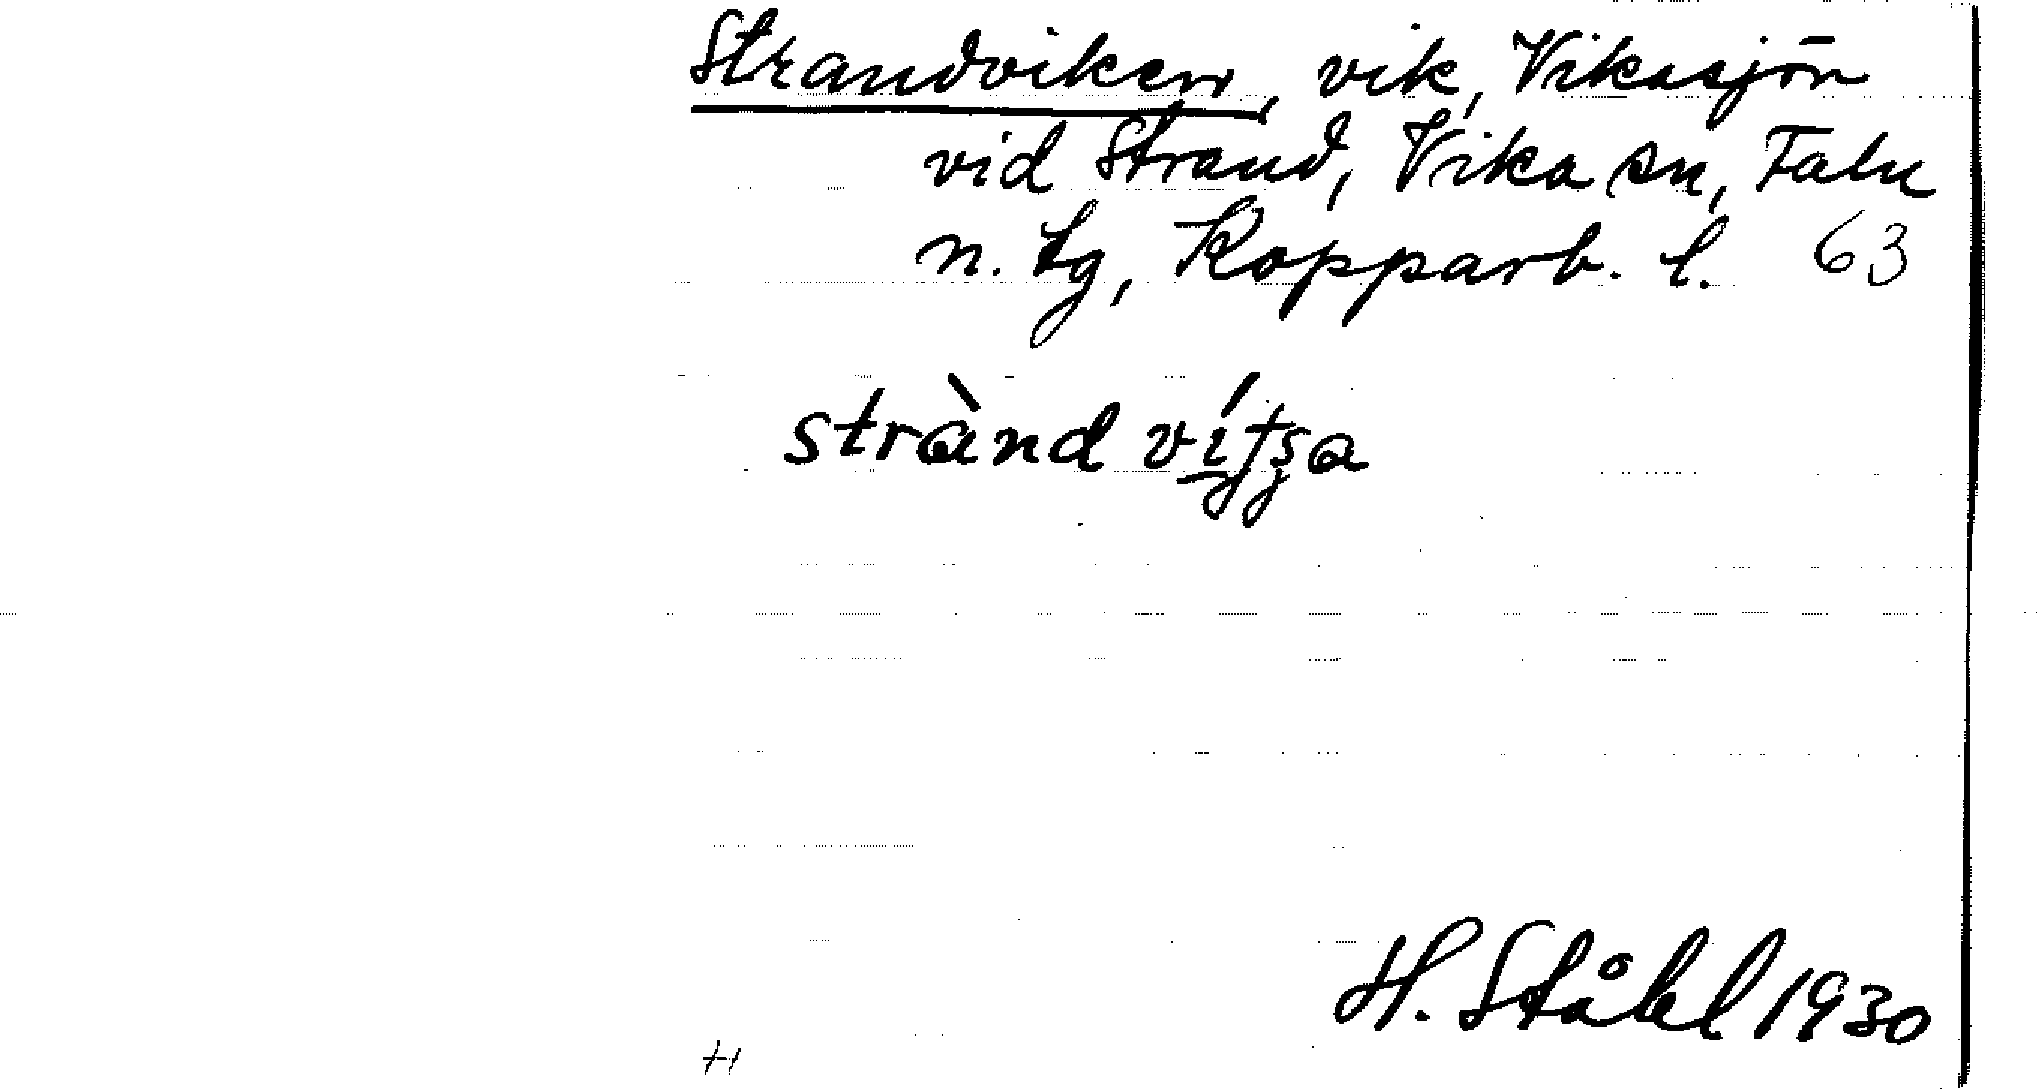 Strandviken, vik, Vikasjön
vid Strand, Vika sn, Falu
n. tg, Kopparb. l. 63
strànd vítʂa
H. Ståhl 1930
H